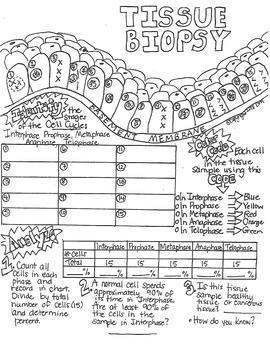 TISSUE
BIOPSY
BASEMENT MEMBRANE
Identify the
stages
of the Cell Cycle:
Interphase Prophase, Metaphase
Anaphase Telophase
Color Code Each cell
in the tissue
sample using this
CODE
① ⑥ ⑪
② ⑦ ⑫
③ ⑧ ⑬
④ ⑨ ⑭
⑤ ⑩ ⑮
o In Interphase → Blue
o In Prophase → Yellow
o In Metaphase → Red
o In Anaphase → Orange
o In Telophase → Green
Analyze
Interphase Prophase Metaphase Anaphase Telophase
# Cells
Total 15 15 15 15 15
% __% __% __% __% __%
1. Count all
cells in each
phase and
record in chart.
Divide by total
number of cells (15)
and determine
percent.
2. A normal cell spends
approximately 90% of
its time in Interphase.
Are at least 90% of
the cells in the
sample in Interphase?
3. Is this tissue
sample healthy
tissue or cancerous
tissue?
• How do you know?